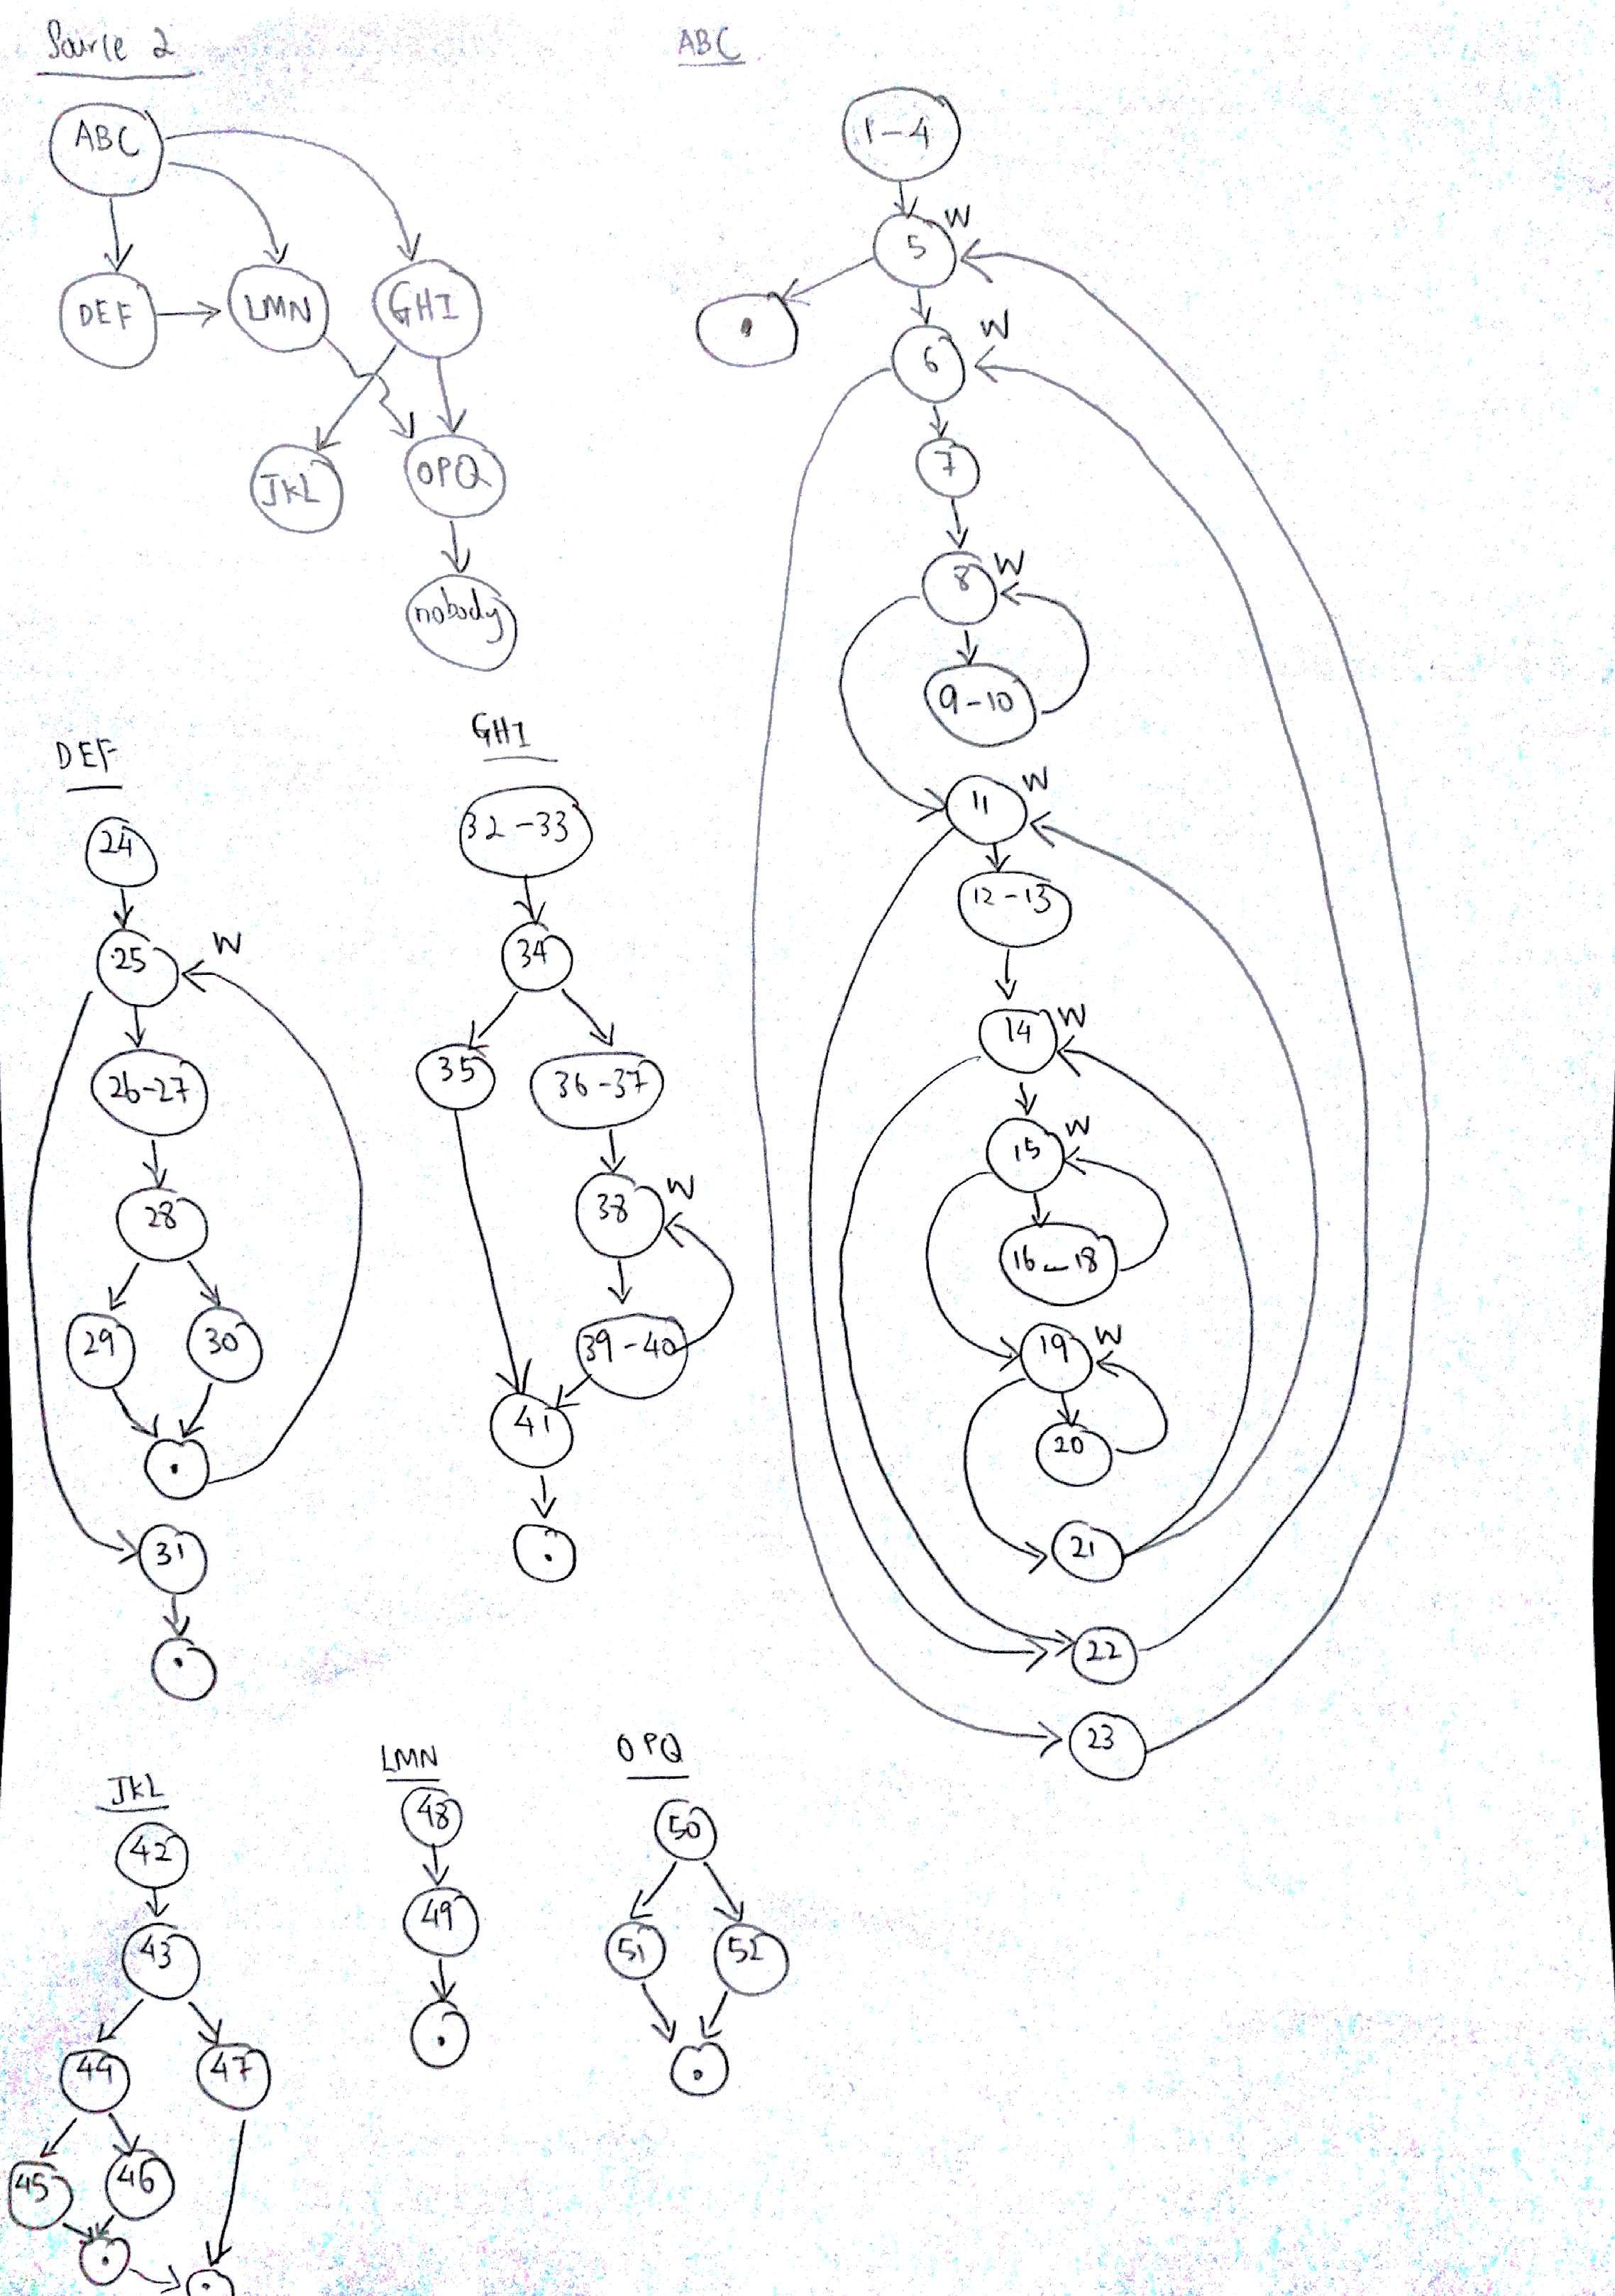 Source 2
ABC
DEF
LMN
GHI
JKL
OPQ
nobody
ABC
1-4
5
W
.
6
W
7
8
W
9-10
11
W
12-13
14
W
15
W
16-18
19
W
20
21
22
23
DEF
24
25
W
26-27
28
29
30
.
31
.
GHI
32-33
34
35
36-37
38
W
39-40
41
.
JKL
42
43
44
47
45
46
.
.
LMN
48
49
.
OPQ
50
51
52
.